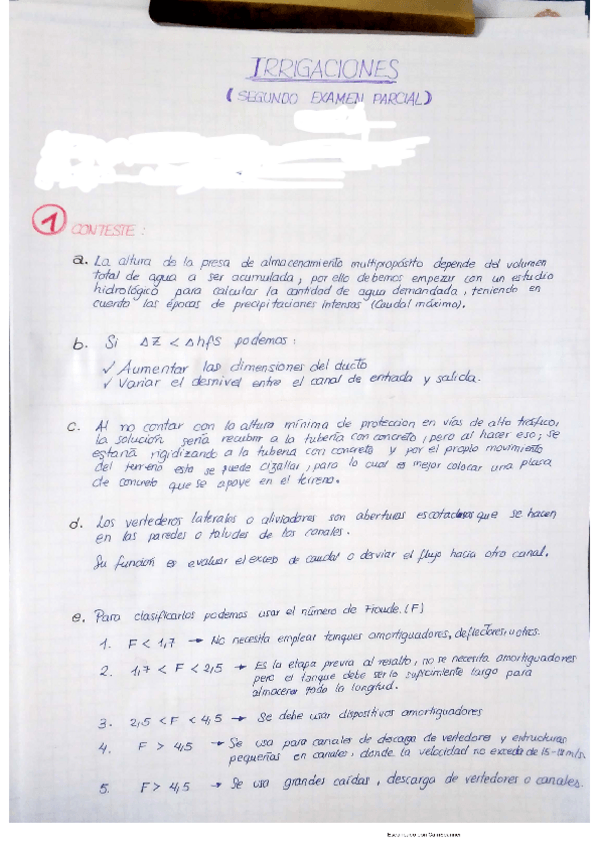 IRRIGACIONES
(SEGUNDO EXAMEN PARCIAL)
1 CONTESTE:
a. La altura de la presa de almacenamiento multipropósito depende del volumen
total de agua a ser acumulada, por ello debemos empezar con un estudio
hidrológico para calcular la cantidad de agua demandada, teniendo en
cuenta las épocas de precipitaciones intensas (Caudal máximo).
b. Si ΔZ < Δhfs podemos:
✓ Aumentar las dimensiones del ducto
✓ Variar el desnivel entre el canal de entrada y salida.
c. Al no contar con la altura mínima de proteccion en vías de alto tráfico,
la solución sería recubrir a la tubería con concreto, pero al hacer eso; se
estaría rigidizando a la tuberia con concreto y por el propio movimiento
del terreno esta se puede cizallar, para lo cual es mejor colocar una placa
de concreto que se apoye en el terreno.
d. Los vertederos laterales o aliviadores son aberturas que se hacen
en las paredes o taludes de los canales.
Su función es evaluar el exceso de caudal o desviar el flujo hacia otro canal.
e. Para clasificarlos podemos usar el número de Froude. (F)
1. F < 1,7 → No necesita emplear tanques amortiguadores, deflectores, u otros.
2. 1,7 < F < 2,5 → Es la etapa previa al resalto, no se necesita amortiguadores
pero el tanque debe ser lo suficiente largo para
almacenar toda la longitud.
3. 2,5 < F < 4,5 → Se debe usar dispositivos amortiguadores
4. F > 4,5 → Se usa para canales de descarga de vertedores y estructuras
pequeñas en canales, donde la velocidad no exceda de 15-18 m/s.
5. F > 4,5 → Se usa grandes caídas, descarga de vertedores o canales.